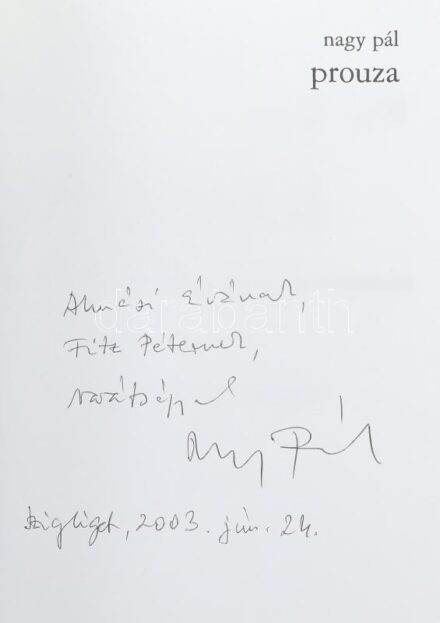 nagy pál
prouza
Almási Évának,
darabanth
Fitz Péternek,
barátsággal
Nagy Pál
Szigliget, 2003. jún. 24.